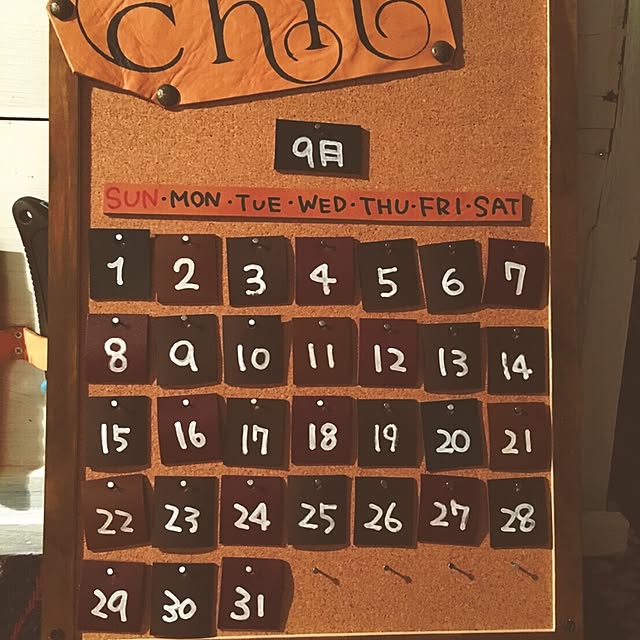 9月
SUN・MON・TUE・WED・THU・FRI・SAT
1 2 3 4 5 6 7
8 9 10 11 12 13 14
15 16 17 18 19 20 21
22 23 24 25 26 27 28
29 30 31